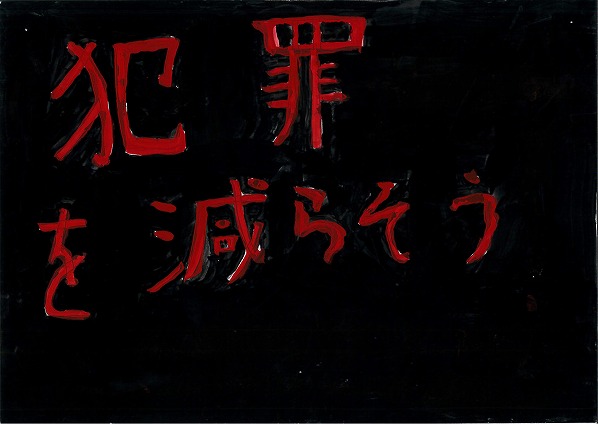 犯罪
を減らそう